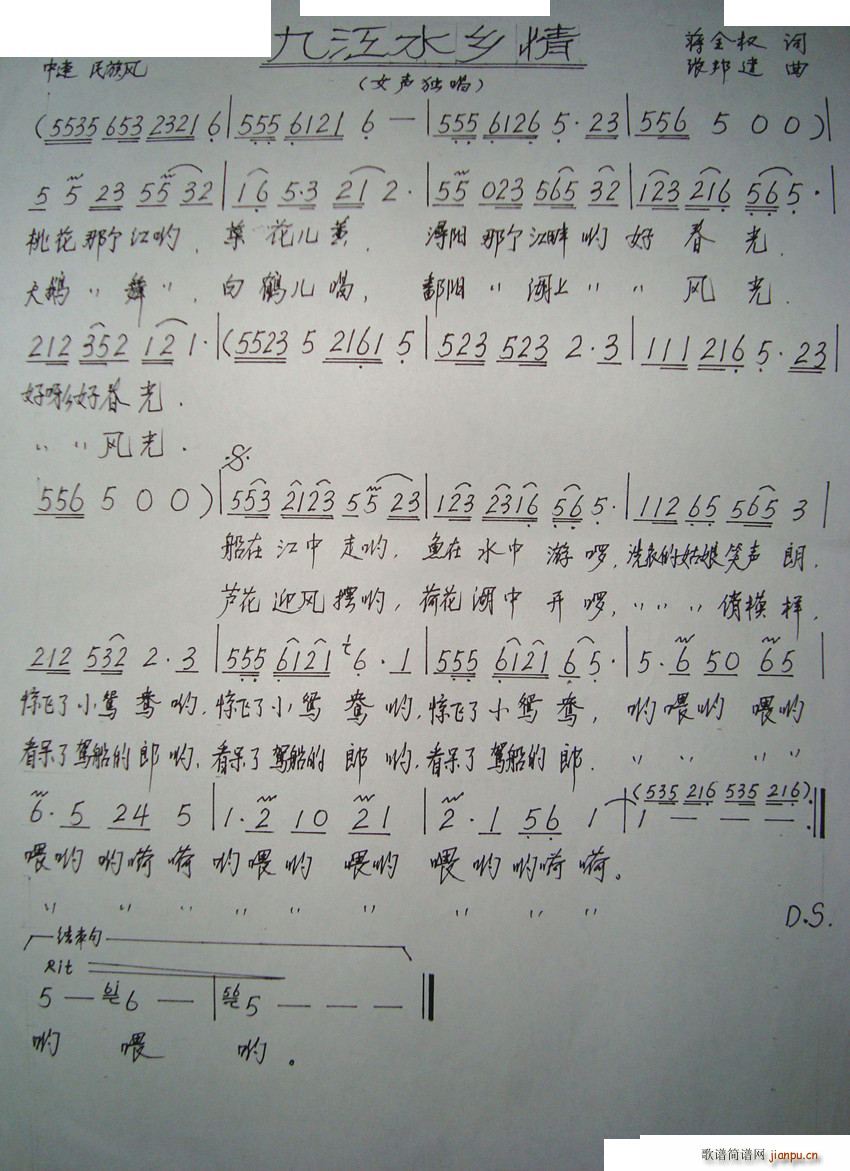 九江水乡情
蒋全权 词
中速 民族风
张邦建 曲
(女声独唱)
(5535 653 2321 6 | 555 6121 6 — | 555 6126 5· 23 | 556 5 0 0 ) |
5 5 23 55 32 | 16 5·3 21 2· | 55 023 565 32 | 123 216 565·|
桃花那个江哟, 草花儿黄, 浔阳那个江畔哟好春光.
天鹅〃舞〃, 白鹤儿唱, 鄱阳〃湖上〃〃风光.
212 352 12 1· | (5523 5 2161 5 | 523 523 2·3 | 111 216 5· 23 |
好呀么好春光.
〃〃风光.
556 5 0 0 ) | 553 2123 55 23 | 123 2316 56 5· | 112 65 565 3 |
船在江中走哟, 鱼在水中游啰, 洗衣的姑娘笑声朗,
芦花迎风摆哟, 荷花湖中开啰, 〃〃〃俏模样,
212 532 2·3 | 555 6121 6·1 | 555 6121 6 5· | 5·6 50 65 |
惊飞了小鸳鸯哟, 惊飞了小鸳鸯哟, 惊飞了小鸳鸯, 哟喂哟喂哟
看呆了驾船的郎哟, 看呆了驾船的郎哟, 看呆了驾船的郎. 〃〃〃〃
(535 216 535 216)
6·5 24 5 | 1·2 10 21 | 2·1 56 1 | 1 — — — :||
喂哟哟嗬嗬哟喂哟喂哟喂哟哟嗬嗬。
〃〃〃〃〃〃〃〃〃
D.S.
结束句
Rit
5 — 6 — | 5 — — — ||
哟喂哟。
歌谱简谱网 jianpu.cn